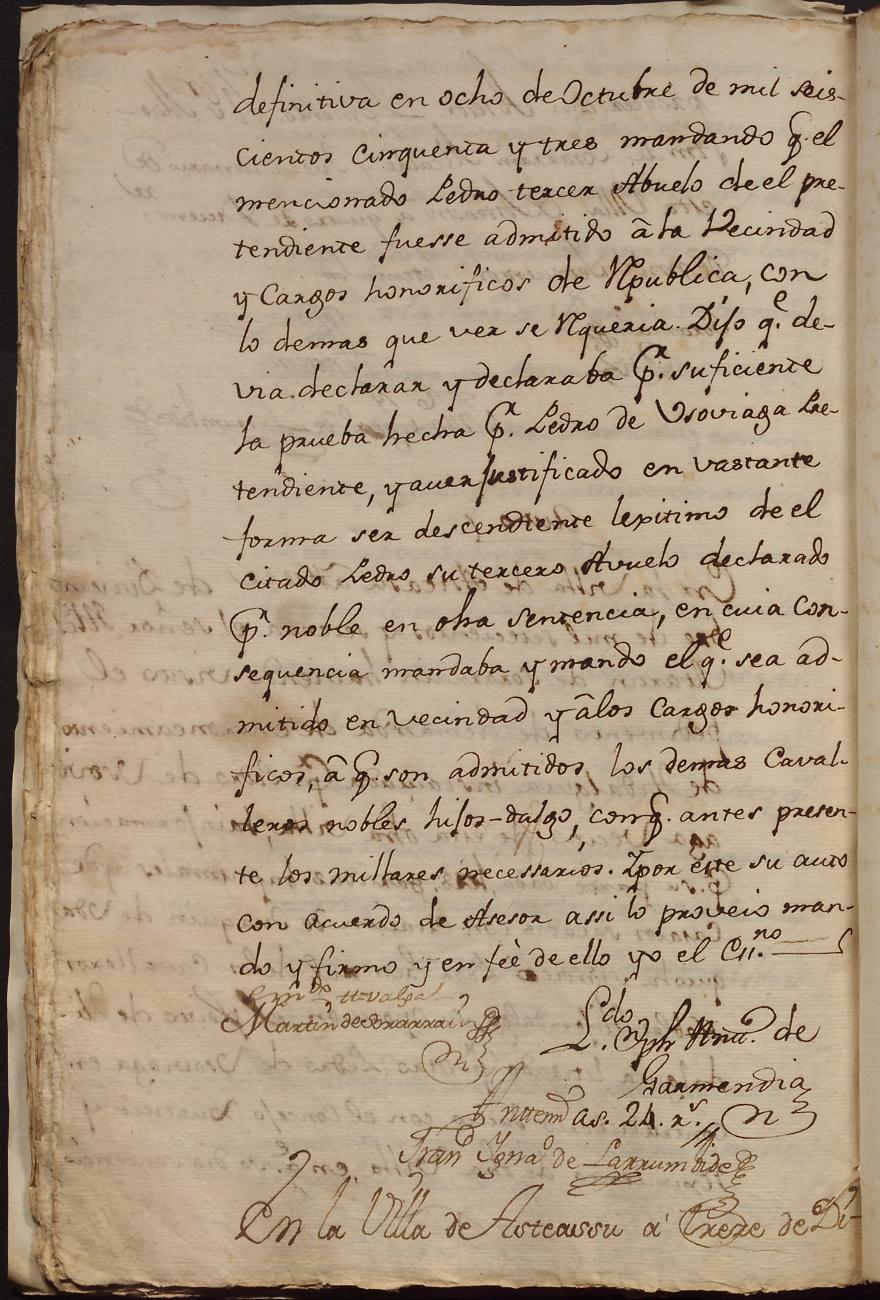 definitiva en ocho de Octubre de mil seis-
cientos cinquenta y tres mandando q. el
mencionado Pedro tercer Abuelo de el pre-
tendiente fuesse admitido â la Vecindad
y Cargos honorificos de Rpublica, con
lo demas que ver se Rqueria. Dijo q.e de-
via declarar y declaraba pr. suficiente
la prueba hecha pr. Pedro de Vsoviaga Pre-
tendiente, y aver justificado en vastante
forma ser descendiente lexitimo de el
citado Pedro su tercero Avuelo declarado
pr. noble en dha sentencia, en cuia con-
sequencia mandaba y mando el q.e sea ad-
mitido en vecindad y â los Cargos honori-
ficos, â q. son admitidos los demas Caval-
leros nobles hijos-dalgo, con q. antes presen-
te los millares necessarios. Y por este su auto
con acuerdo de Asesor assi lo proveio man-
do y firmo y en feè de ello yo el Ess.no
Martin de
L.do Jph Anto. de
Garmendia
Antemi as. 24. rs.
Fran.co Ygna.o de Larrumbide
En la Villa de Asteassu a treze de Di-